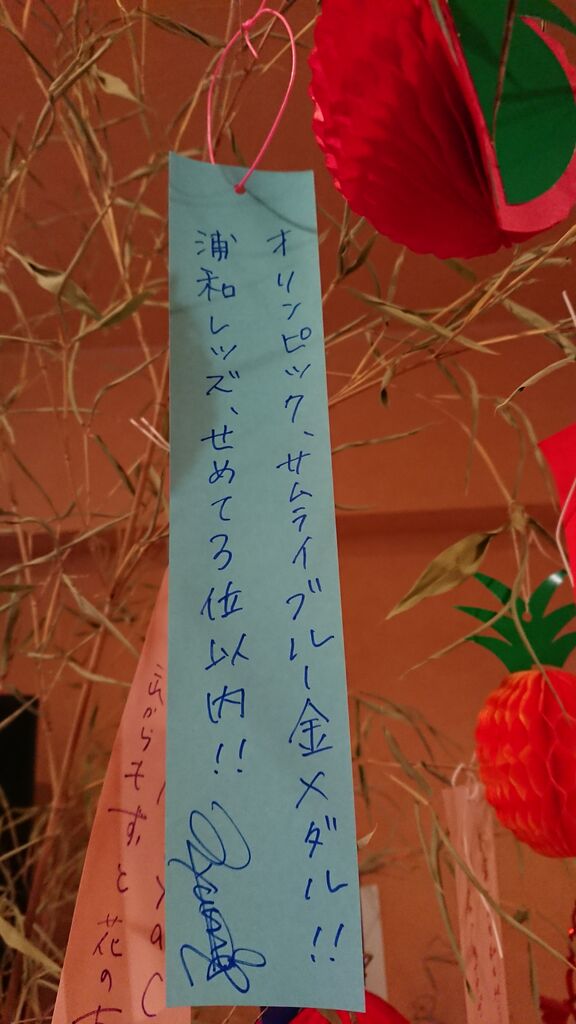 オリンピック、サムライブルー金メダル!!
浦和レッズ、せめて3位以内!!